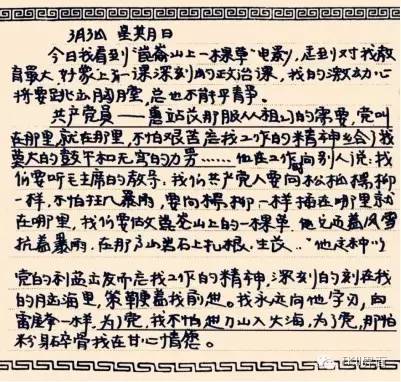 3月3日 星期日
今日我看到"崑崙山上一棵草"电影,对我教
育最大 好象上了一课深刻的政治课,我的激动心
将要跳出胸膛,总也不能平静。
共产党员——惠 服从祖国的需要,党叫
在那里,就在那里,不怕艰苦忘我工作的精神给了我
莫大的鼓午和无穷的力……他在工作向别人说:我
们要听毛主席的教导:我们共产党人要向松柏楊柳
一样,不怕狂风暴雨,要向楊柳一样插在哪里就
在哪里,我们要做 山上的一棵草.它迎着风雪
抗着暴雨.在那高山岩石上扎根.生长.."他这种以
党的利益出发而忘我工作的精神,深刻的刻在我
的脑海里,鞭策着我前进。我永远向他学习,向
雷锋一样.为了党,我不怕进刀山入火海,为了党,那怕
粉身碎骨我在甘心情愿。